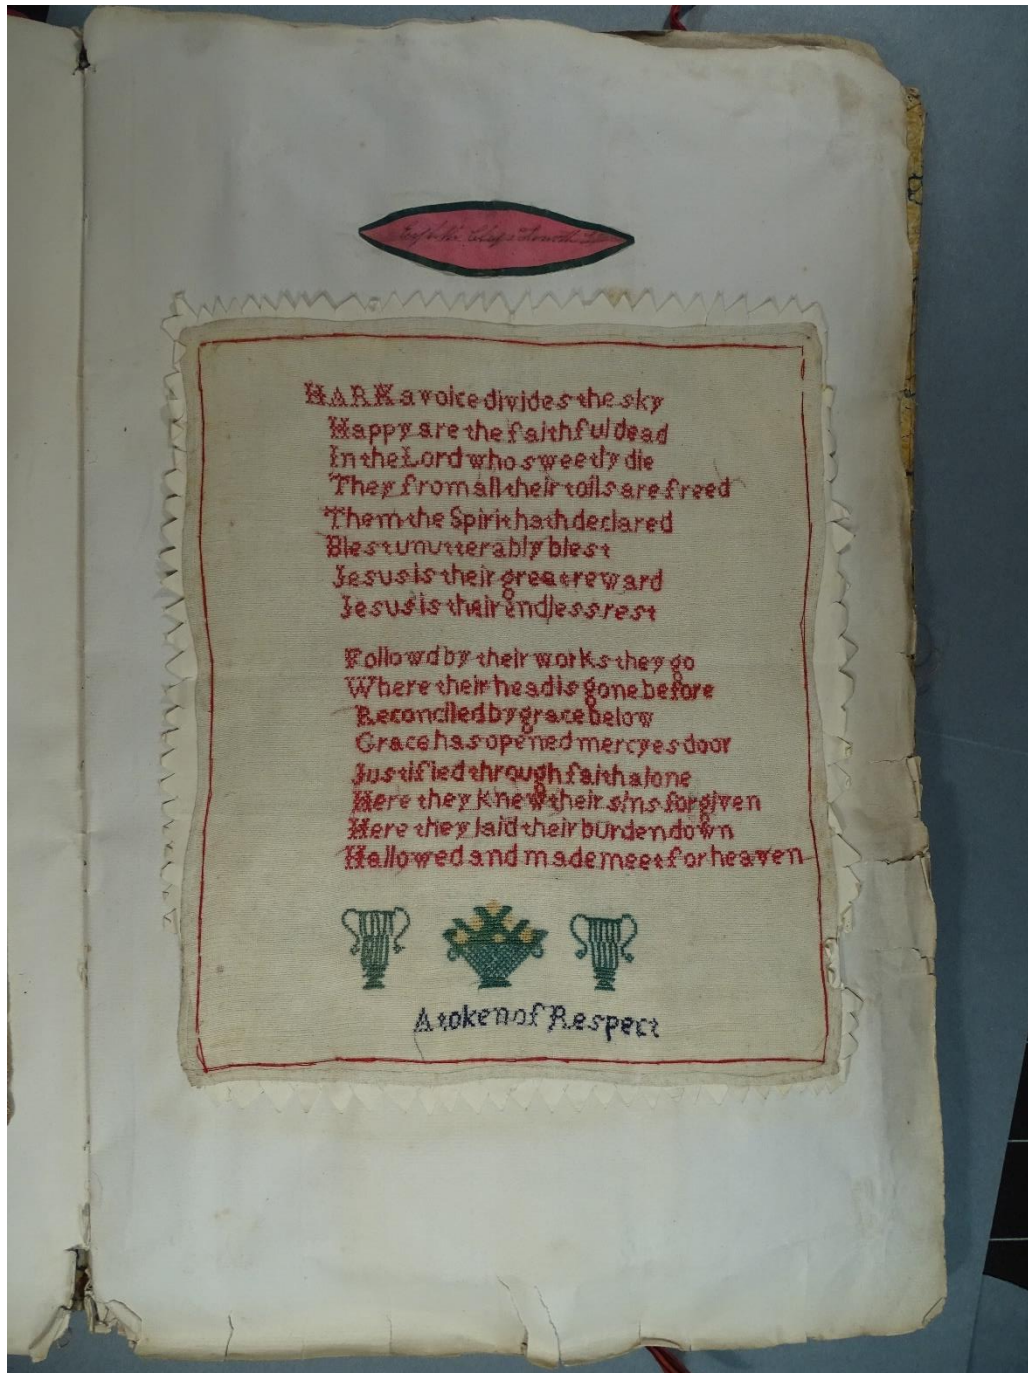 HARK a voice divides the sky
Happy are the faithful dead
In the Lord who sweetly die
They from all their toils are freed
Them the Spirit hath declared
Blest unutterably blest
Jesus is their great reward
Jesus is their endless rest
Followd by their works they go
Where their head is gone before
Reconciled by grace below
Grace has opened mercyes door
Justified through faith alone
Here they knew their sins forgiven
Here they laid their burden down
Hallowed and made meet for heaven
A token of Respect